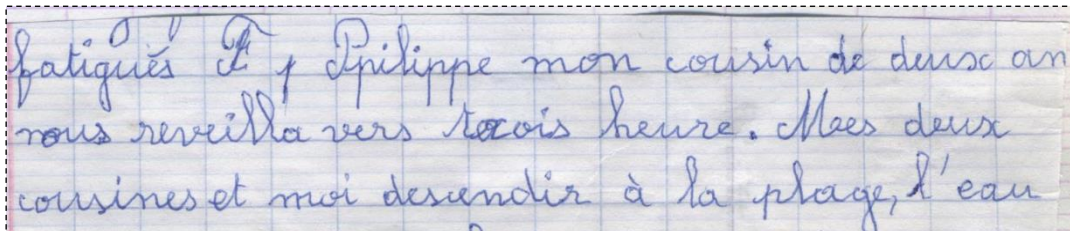 fatigués , Philippe mon cousin de deux an
nous reveilla vers trois heure. Mees deux
cousines et moi descendir à la plage, l'eau